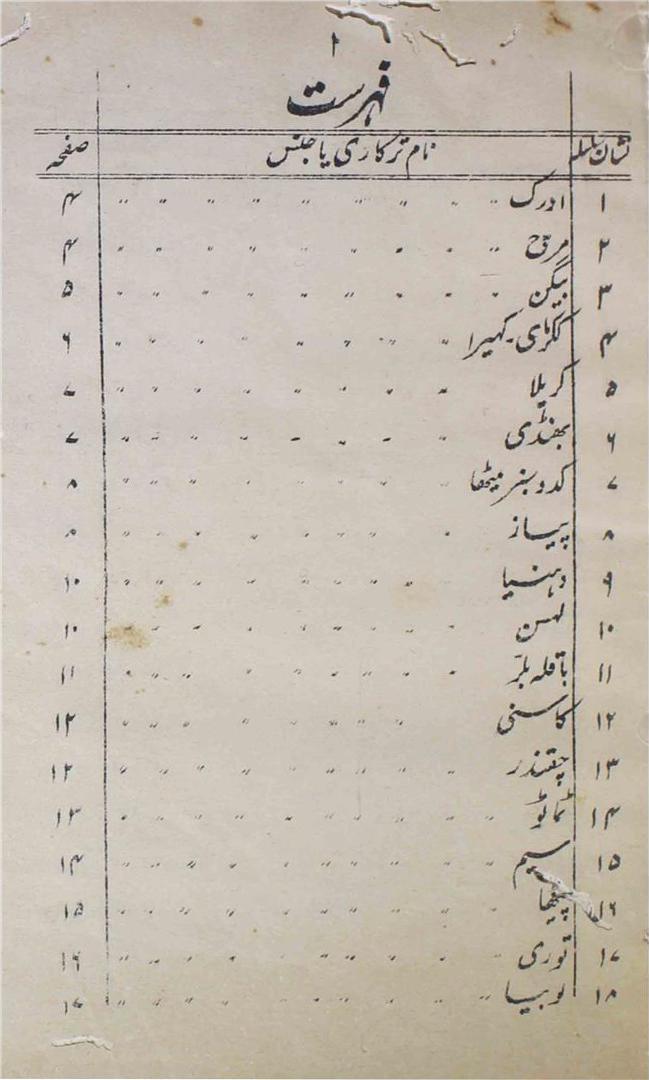 ۲
فہرست
نشان سلسلہ نام ترکاری یا جنس صفحہ
۱ ادرک ۴
۲ مرچ ۴
۳ بیگن ۵
۴ ککڑی ۔ کہیرا ۶
۵ کریلا ۷
۶ بھنڈی ۷
۷ کدو سبز میٹھا ۸
۸ پیاز ۸
۹ دہنیا ۱۰
۱۰ لہسن ۱۰
۱۱ باقلہ بلر ۱۱
۱۲ کاسنی ۱۲
۱۳ چقندر ۱۲
۱۴ ٹماٹو ۱۳
۱۵ سیم ۱۴
۱۶ ۱۵
۱۷ توری ۱۶
۱۸ لوبیا ۱۷